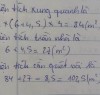 diện tích xung quanh là:
(6 + 4,5) × 4 = 84 (m²)
diện tích trần nhà là:
6 × 4,5 = 27 (m²)
diện tích cần quét vôi là:
84 + 27 - 8,5 = 102,5 (m²)